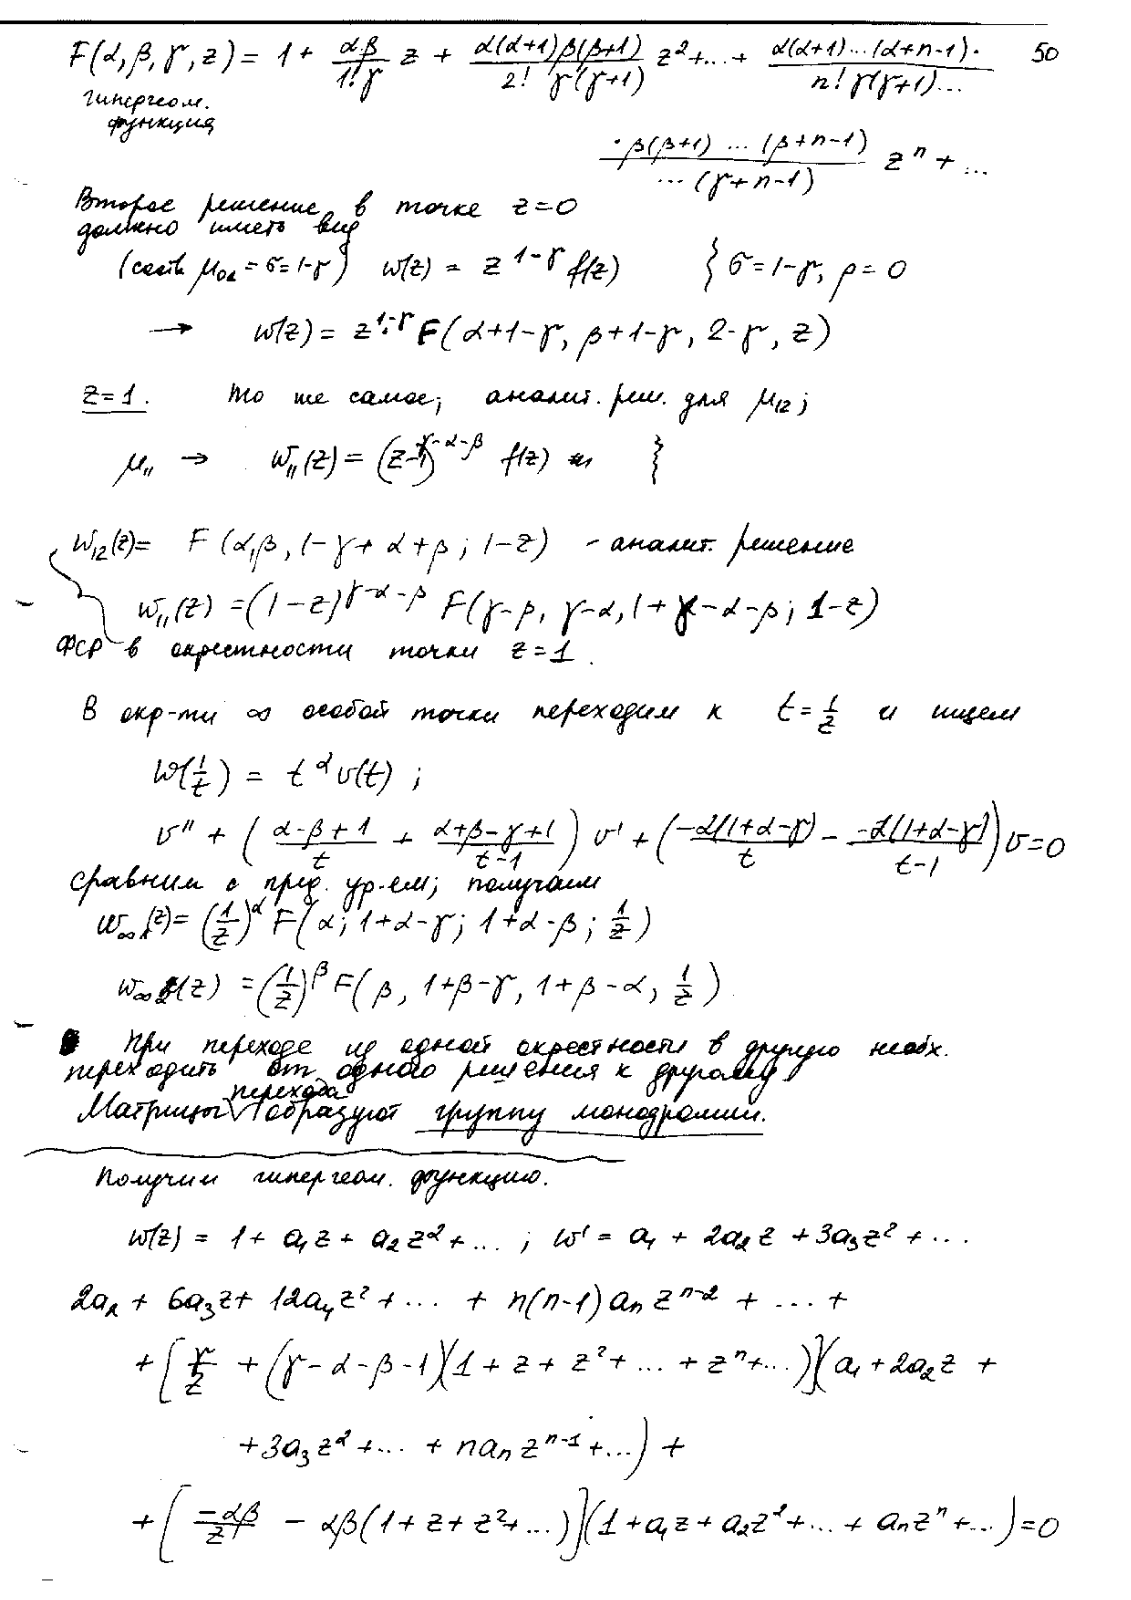 50
F(α, β, γ, z) = 1 + αβ/(1! γ) z + α(α+1)β(β+1)/(2! γ(γ+1)) z² + ... + α(α+1)...(α+n-1)·/(n! γ(γ+1)...
гипергеом.
функция
·β(β+1) ... (β+n-1)/(... (γ+n-1)) zⁿ + ...
Второе решение в точке z=0
должно иметь вид
(соотв μ₀₂ = σ = 1-γ) w(z) = z^(1-γ) f(z) { σ = 1-γ, ρ = 0
→ w(z) = z^(1-γ) F(α+1-γ, β+1-γ, 2-γ, z)
z=1. То же самое; аналит. реш. для μ₁₂;
μ₁₁ → w₁₁(z) = (z-1)^(γ-α-β) f(z)
w₁₂(z) = F(α, β, 1-γ+α+β; 1-z) - аналит. решение
w₁₁(z) = (1-z)^(γ-α-β) F(γ-β, γ-α, 1+γ-α-β; 1-z)
ФСР в окрестности точки z=1.
В окр-ти ∞ особой точки переходим к t = 1/z и ищем
w(1/t) = t^α v(t) ;
v'' + ( (α-β+1)/t + (α+β-γ+1)/(t-1) ) v' + ( -α(1+α-γ)/t - -α(1+α-γ)/(t-1) ) v = 0
сравним с пред. ур-ем; получаем
w∞₁(z) = (1/z)^α F(α; 1+α-γ; 1+α-β; 1/z)
w∞₂(z) = (1/z)^β F(β, 1+β-γ, 1+β-α, 1/z)
При переходе из одной окрестности в другую необх.
переходить от одного решения к другому.
Матрицы перехода образуют группу монодромии.
Получим гипергеом. функцию.
w(z) = 1 + a₁z + a₂z² + ... ; w' = a₁ + 2a₂z + 3a₃z² + ...
2a₂ + 6a₃z + 12a₄z² + ... + n(n-1)aₙz^(n-2) + ... +
+ [γ/z + (γ-α-β-1)(1 + z + z² + ... + zⁿ + ...)](a₁ + 2a₂z +
+ 3a₃z² + ... + naₙz^(n-1) + ...) +
+ [-αβ/z - αβ(1 + z + z² + ...)](1 + a₁z + a₂z² + ... + aₙzⁿ + ...) = 0